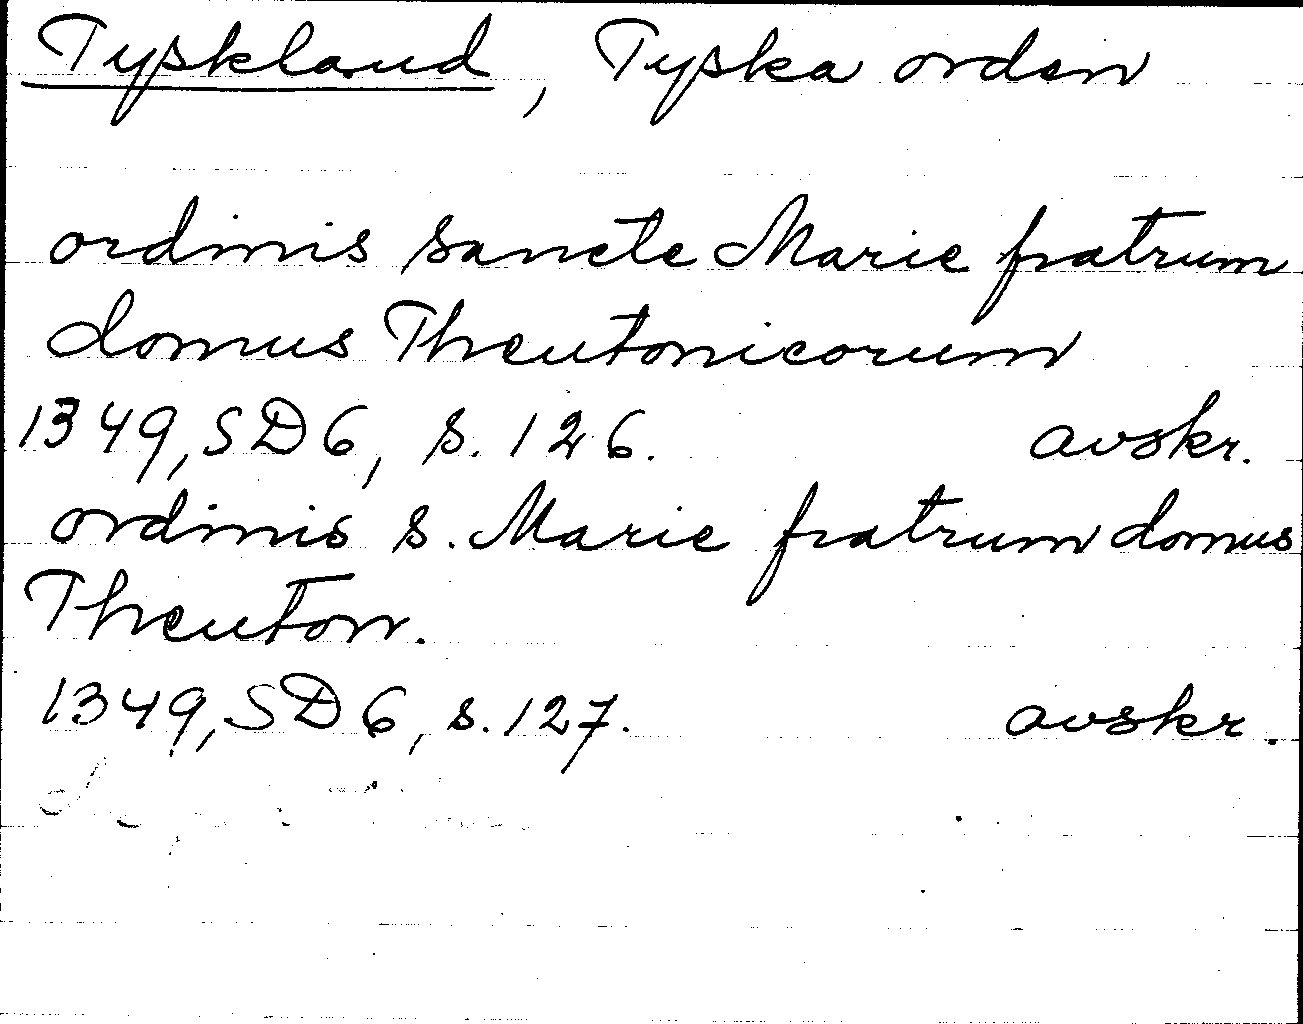 Tyskland, Tyska orden
ordinis sancte Marie fratrum
domus Theutonicorum
1349, SD 6, s. 126. avskr.
ordinis s. Marie fratrum domus
Theuton.
1349, SD 6, s. 127. avskr.